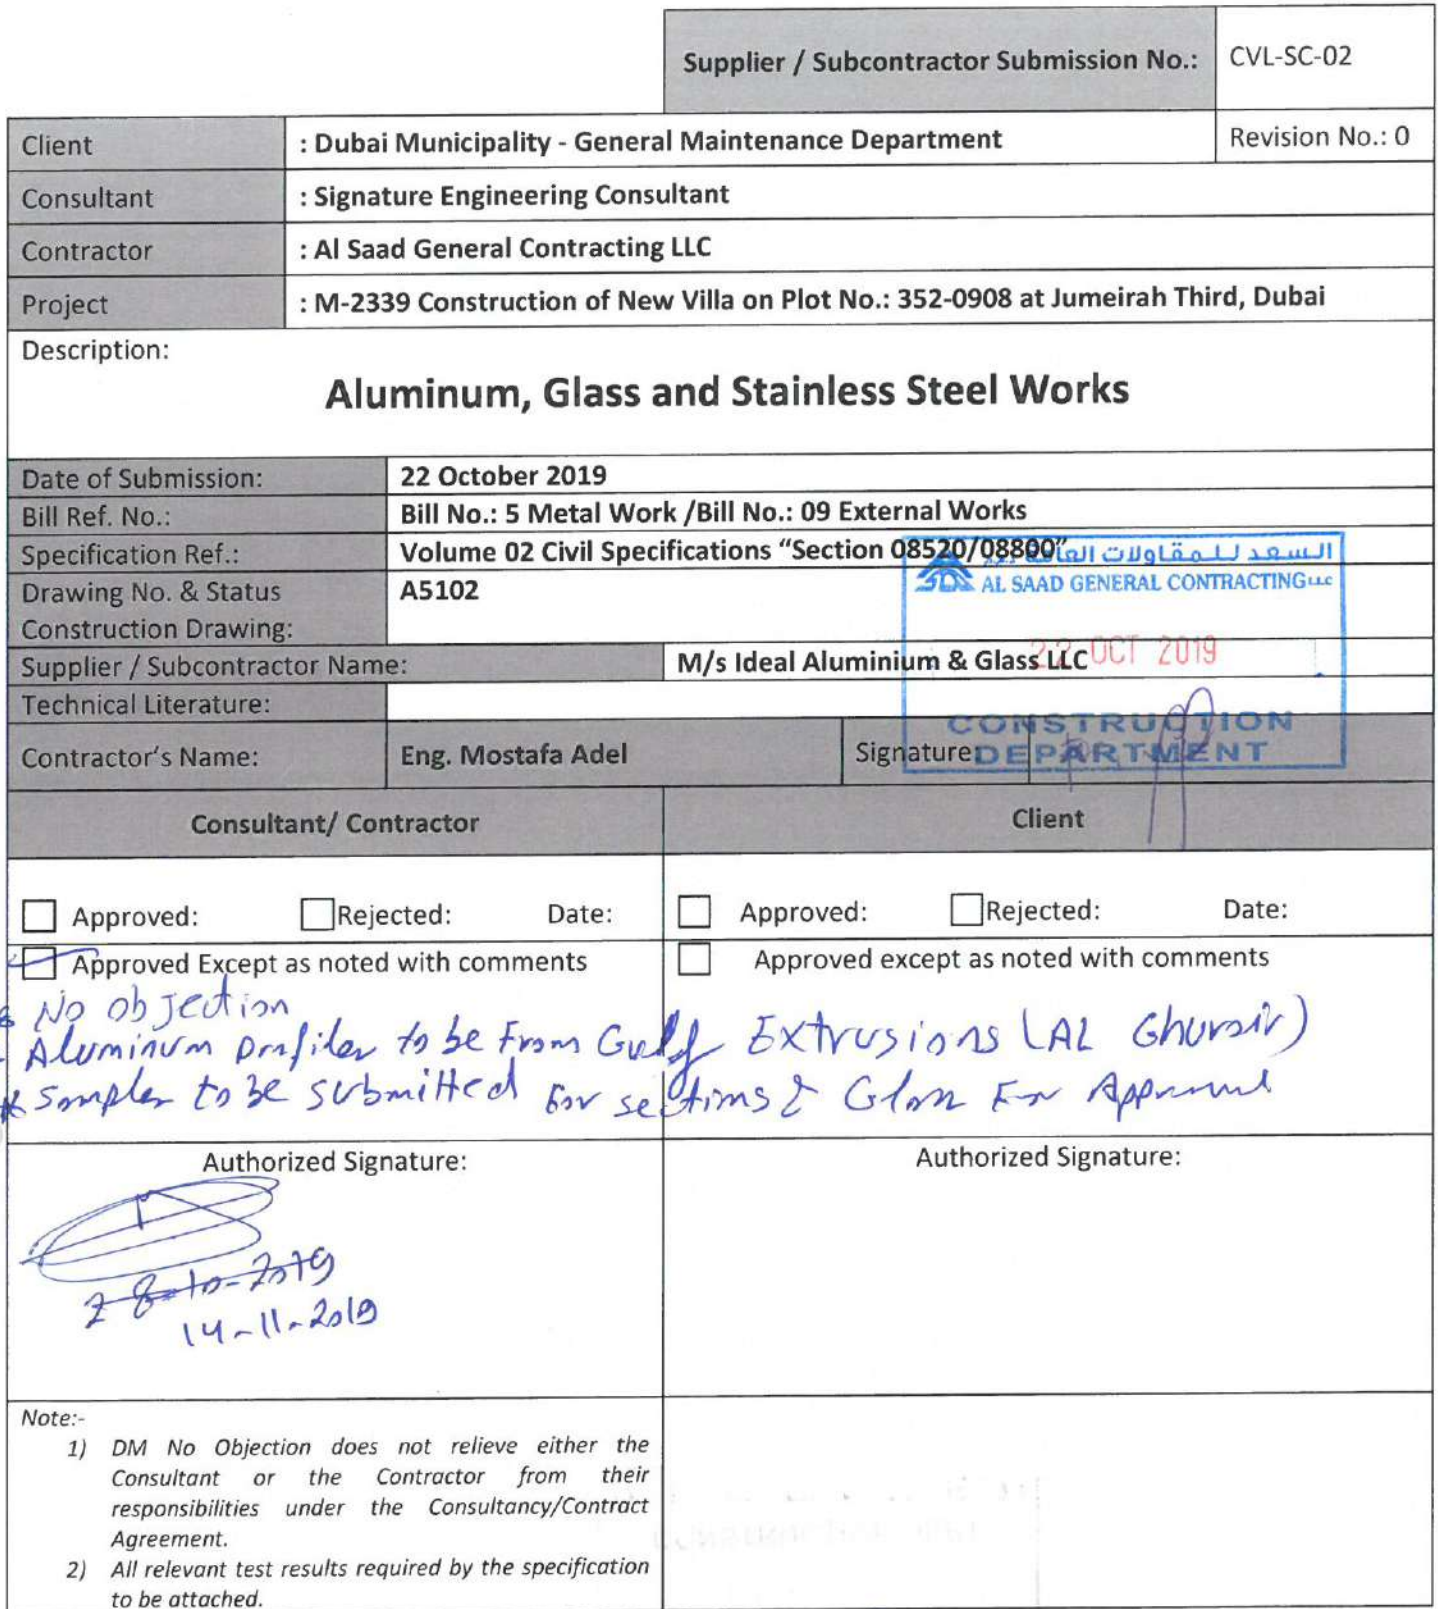 Supplier / Subcontractor Submission No.: CVL-SC-02
Client : Dubai Municipality - General Maintenance Department Revision No.: 0
Consultant : Signature Engineering Consultant
Contractor : Al Saad General Contracting LLC
Project : M-2339 Construction of New Villa on Plot No.: 352-0908 at Jumeirah Third, Dubai
Description:
Aluminum, Glass and Stainless Steel Works
Date of Submission: 22 October 2019
Bill Ref. No.: Bill No.: 5 Metal Work /Bill No.: 09 External Works
Specification Ref.: Volume 02 Civil Specifications “Section 08520/08800”
السعد للمقاولات العامة
Drawing No. & Status A5102
AL SAAD GENERAL CONTRACTING LLC
Construction Drawing:
22 OCT 2019
Supplier / Subcontractor Name: M/s Ideal Aluminium & Glass LLC
Technical Literature:
CONSTRUCTION
DEPARTMENT
Contractor's Name: Eng. Mostafa Adel Signature:
Consultant/ Contractor Client
Approved: Rejected: Date: Approved: Rejected: Date:
Approved Except as noted with comments Approved except as noted with comments
No objection
- Aluminum profiles to be From Gulf Extrusions (AL Ghurair)
* Samples to be submitted For sections & Glass For Approval
Authorized Signature: Authorized Signature:
28-10-2019
14-11-2019
Note:-
1) DM No Objection does not relieve either the
Consultant or the Contractor from their
responsibilities under the Consultancy/Contract
Agreement.
2) All relevant test results required by the specification
to be attached.